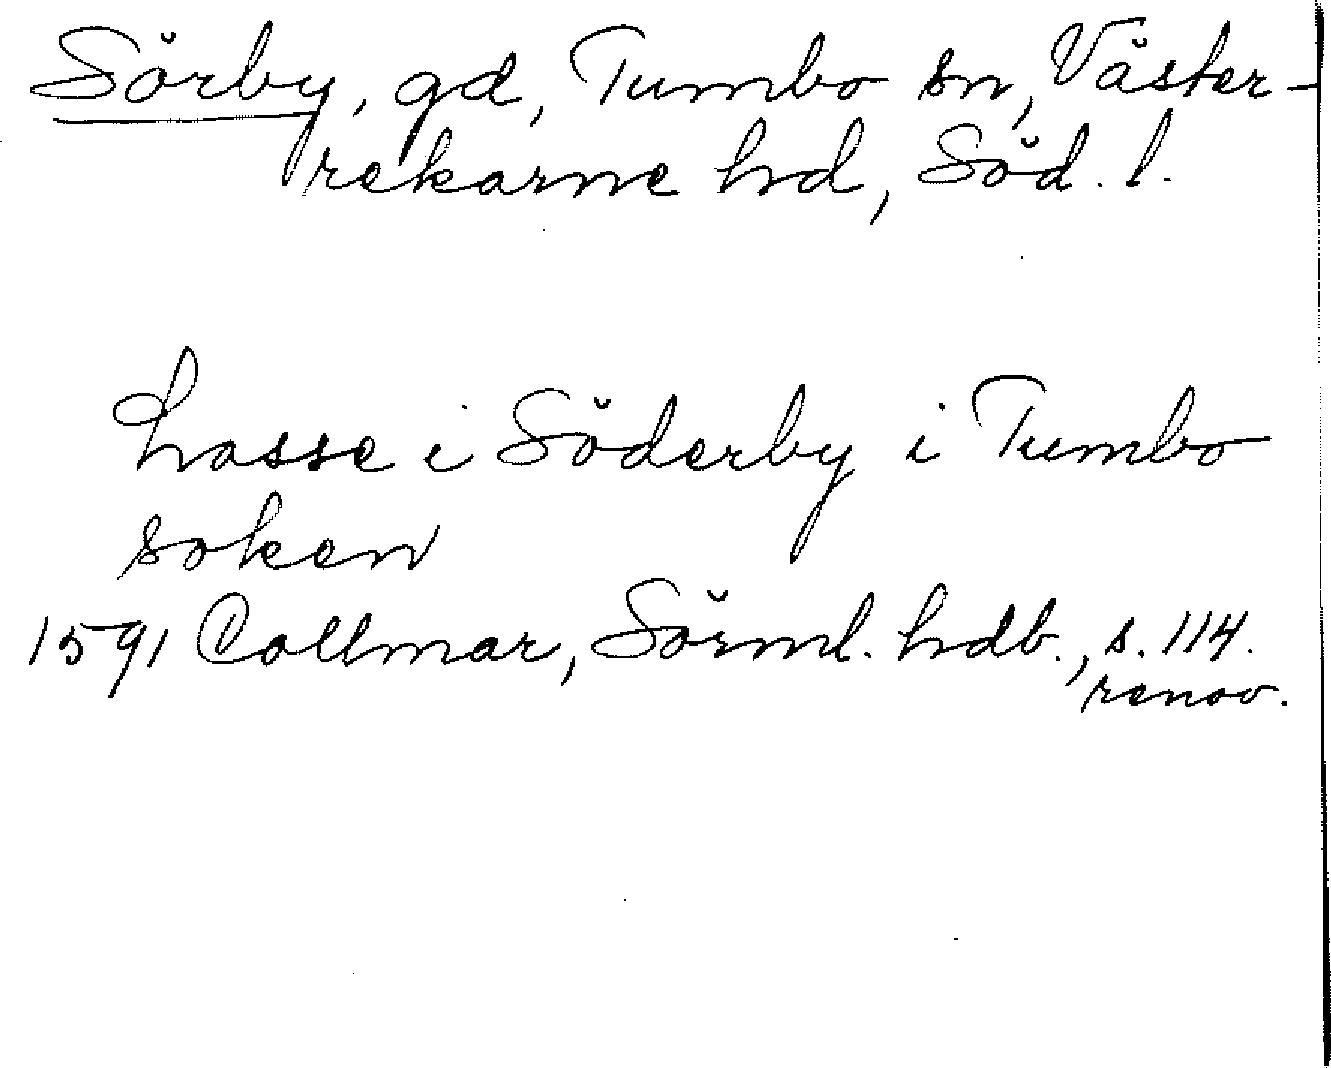 Sörby, gd, Tumbo sn, Väster-
rekarne hd, Söd. l.
Lasse i Söderby i Tumbo
soken
1591 Collmar, Sörml. hdb., s. 114.
renov.